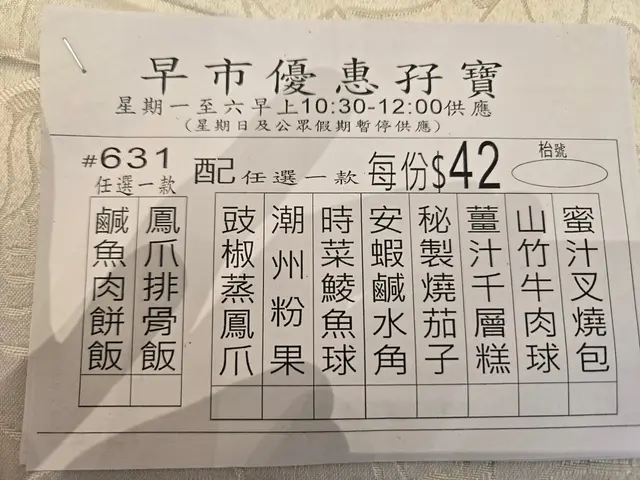 早市優惠孖寶
星期一至六早上10:30-12:00供應
(星期日及公眾假期暫停供應)
#631
任選一款
配任選一款 每份$42
枱號
鹹魚肉餅飯
鳳爪排骨飯
豉椒蒸鳳爪
潮州粉果
時菜鯪魚球
安蝦鹹水角
秘製燒茄子
薑汁千層糕
山竹牛肉球
蜜汁叉燒包